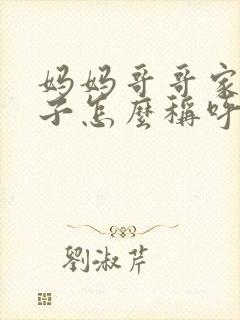 妈妈哥哥家
子怎麼稱呼
劉淑芹